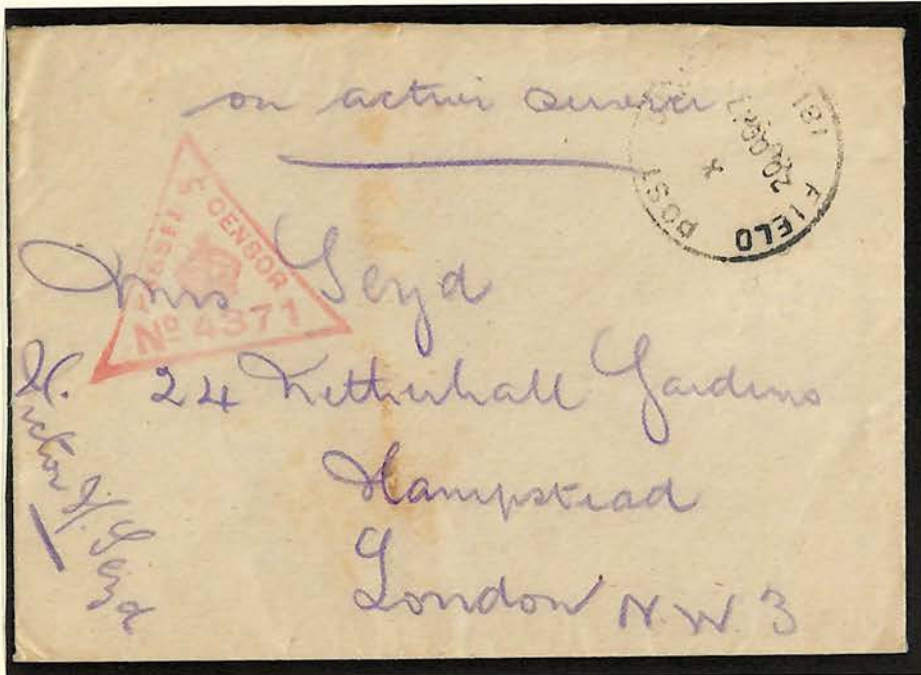 on active service
FIELD POST
181
PASSED CENSOR
No 4371
Mrs Seyd
24 Netherhall Gardens
Hampstead
London N.W. 3
Victor H. Seyd